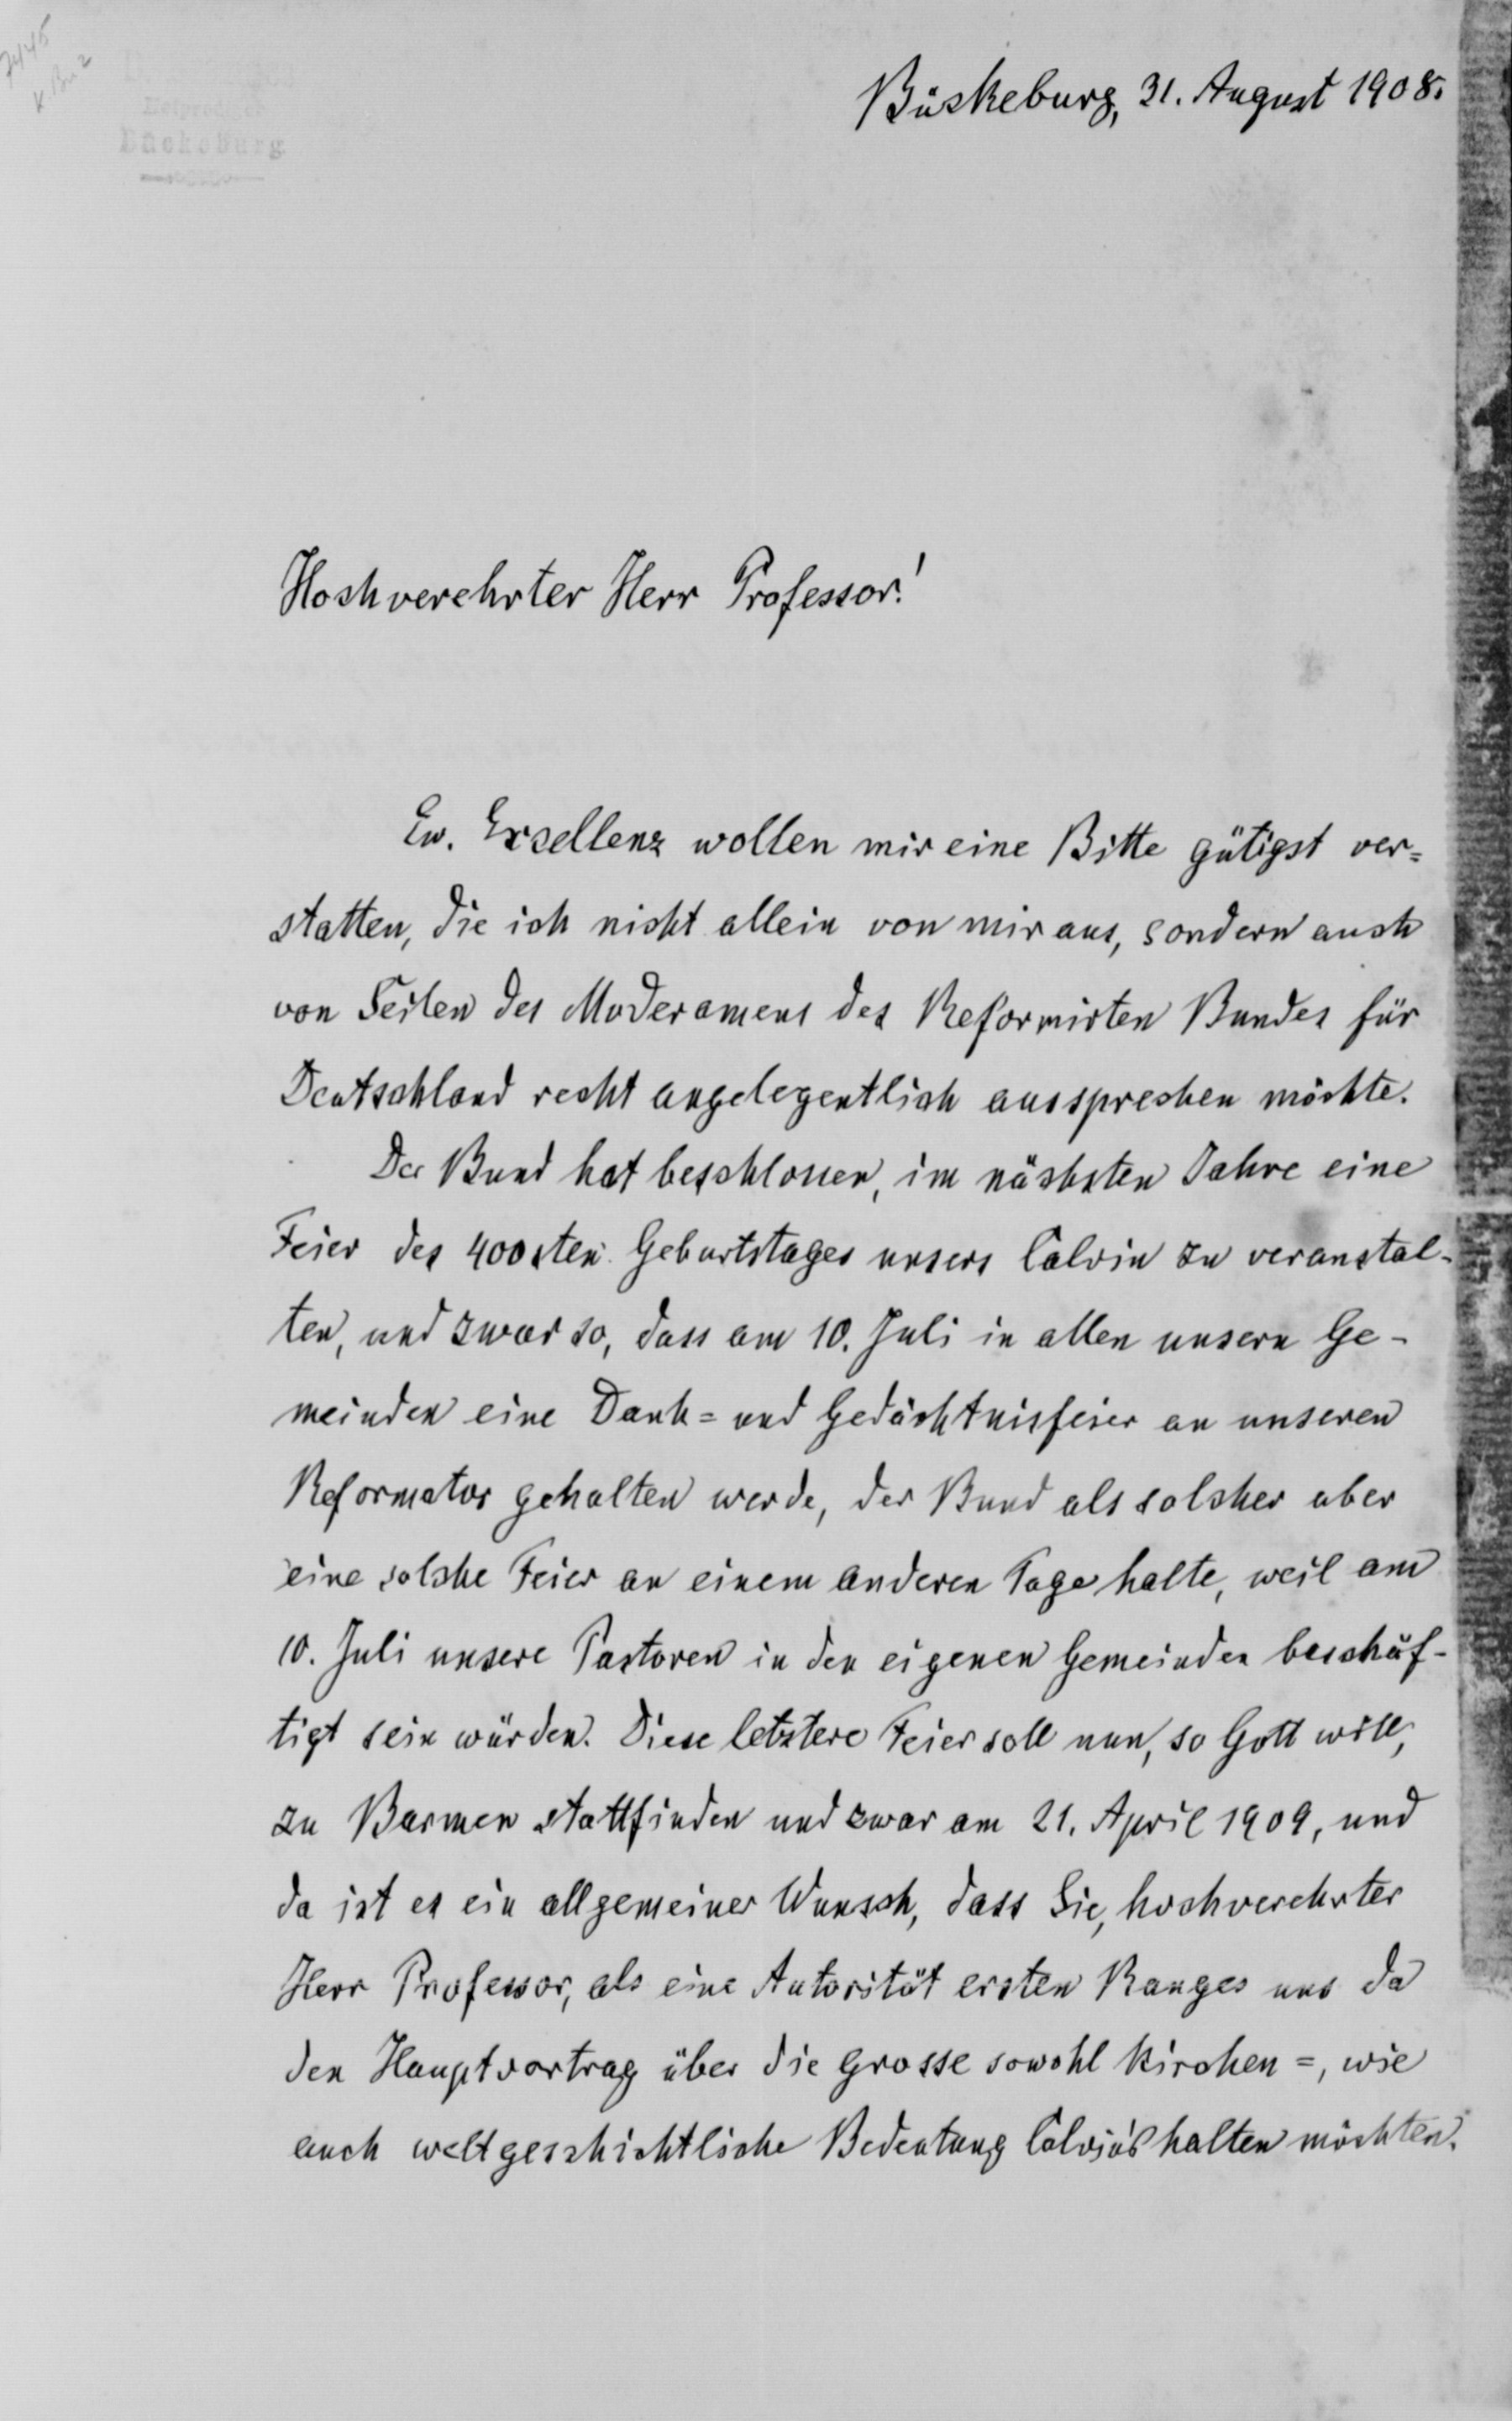 7445
Bückeburg
Bückeburg, 31. August 1908.
Hochverehrter Herr Professor!
Ew. Excellenz wollen mir eine Bitte gütigst ver=
statten, die ich nicht allein von mir aus, sondern auch
von Seiten des Moderamens des Reformirten Bundes für
Deutschland recht angelegentlich aussprechen möchte.
Der Bund hat beschlossen, im nächsten Jahre eine
Feier des 400sten Geburtstages unsers Calvin zu veranstal-
ten, und zwar so, dass am 10. Juli in allen unsern Ge-
meinden eine Dank= und Gedächtnisfeier an unseren
Reformator gehalten werde, der Bund als solcher aber
eine solche Feier an einem anderen Tage halte, weil am
10. Juli unsere Pastoren in den eigenen Gemeinden beschäf-
tigt sein würden. Diese letztere Feier soll nun, so Gott will,
zu Barmen stattfinden und zwar am 21. April 1909, und
da ist es ein allgemeiner Wunsch, dass Sie, hochverehrter
Herr Professor, als eine Autorität ersten Ranges uns da
den Hauptvortrag über die grosse sowohl kirchen=, wie
auch weltgeschichtliche Bedeutung Calvin's halten möchten.